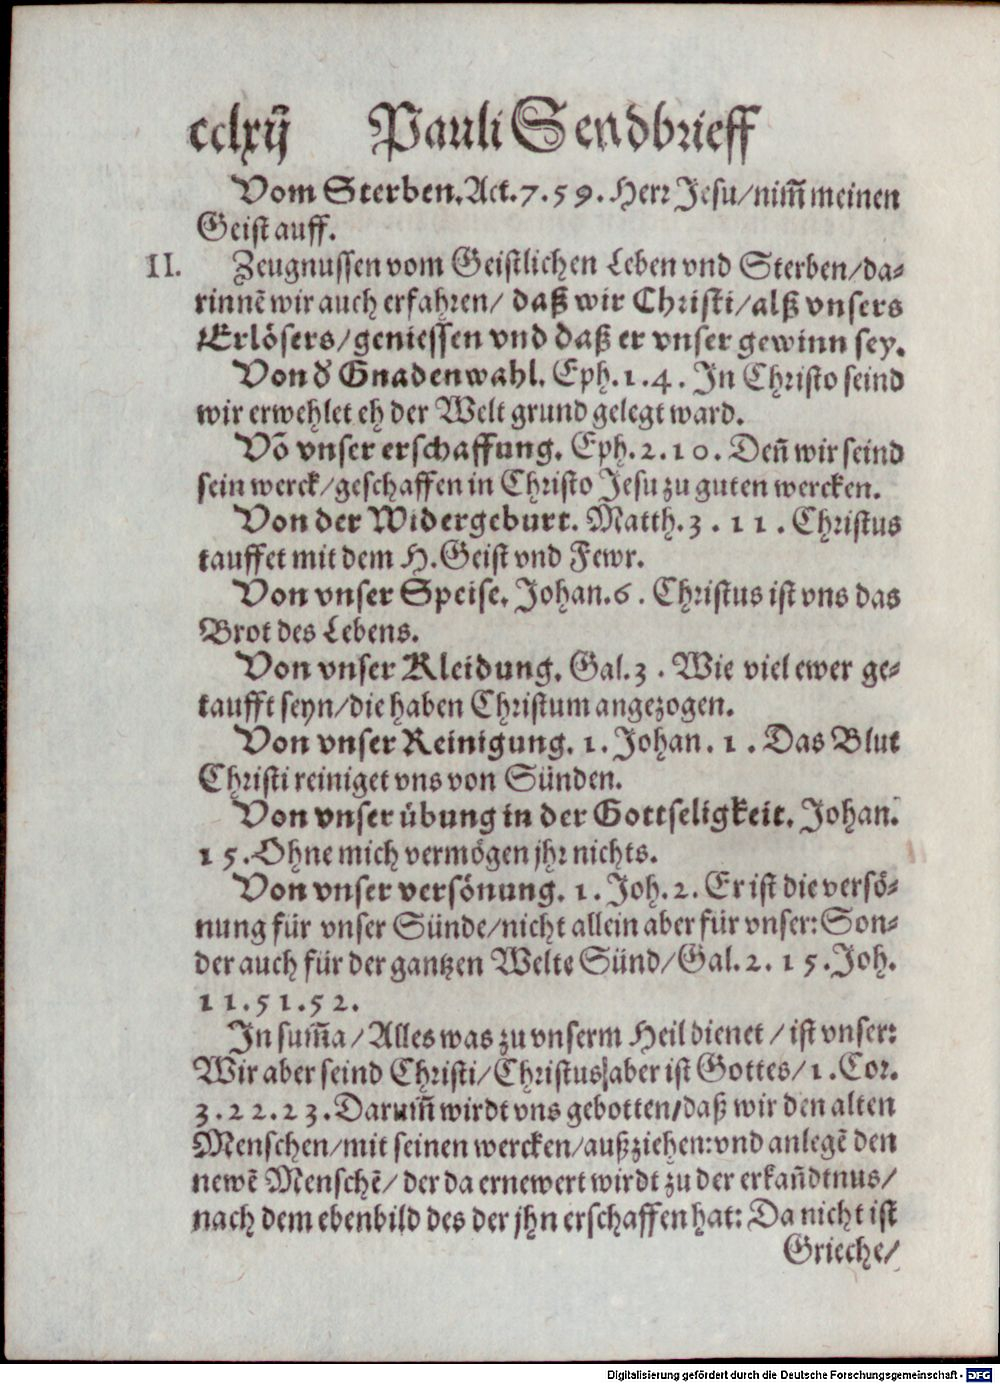 cclxij Pauli Sendbrieff
Vom Sterben. Act. 7. 59. Herr Jesu/nim̃ meinen
Geist auff.
II. Zeugnussen vom Geistlichen Leben vnd Sterben/da-
rinnẽ wir auch erfahren/ daß wir Christi/alß vnsers
Erlösers/geniessen vnd daß er vnser gewinn sey.
Von d̕ Gnadenwahl. Eph. 1. 4. In Christo seind
wir erwehlet eh der Welt grund gelegt ward.
Võ vnser erschaffung. Eph. 2. 10. Deñ wir seind
sein werck/geschaffen in Christo Jesu zu guten wercken.
Von der Widergeburt. Matth. 3. 11. Christus
tauffet mit dem H. Geist vnd Fewr.
Von vnser Speise. Johan. 6. Christus ist vns das
Brot des Lebens.
Von vnser Kleidung. Gal. 3. Wie viel ewer ge-
taufft seyn/die haben Christum angezogen.
Von vnser Reinigung. 1. Johan. 1. Das Blut
Christi reiniget vns von Sünden.
Von vnser übung in der Gottseligkeit. Johan.
15. Ohne mich vermögen jhr nichts.
Von vnser versönung. 1. Joh. 2. Er ist die versö-
nung für vnser Sünde/nicht allein aber für vnser: Son-
der auch für der gantzen Welte Sünd/Gal. 2. 15. Joh.
11. 51. 52.
In sum̃a/Alles was zu vnserm Heil dienet/ist vnser:
Wir aber seind Christi/Christus aber ist Gottes/1. Cor.
3. 22. 23. Darum̃ wirdt vns gebotten/daß wir den alten
Menschen/mit seinen wercken/außziehen: vnd anlegẽ den
newẽ Menschẽ/der da ernewert wirdt zu der erkañdtnus/
nach dem ebenbild des der jhn erschaffen hat: Da nicht ist
Grieche/
Digitalisierung gefördert durch die Deutsche Forschungsgemeinschaft - DFG